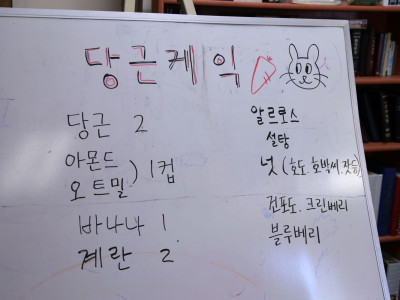 당근케익
당근 2
아몬드
오트밀 ) 1컵
바나나 1
계란 2
알르로스
설탕
넛 (호도. 호박씨. 잣등)
건포도. 크린베리
블루베리